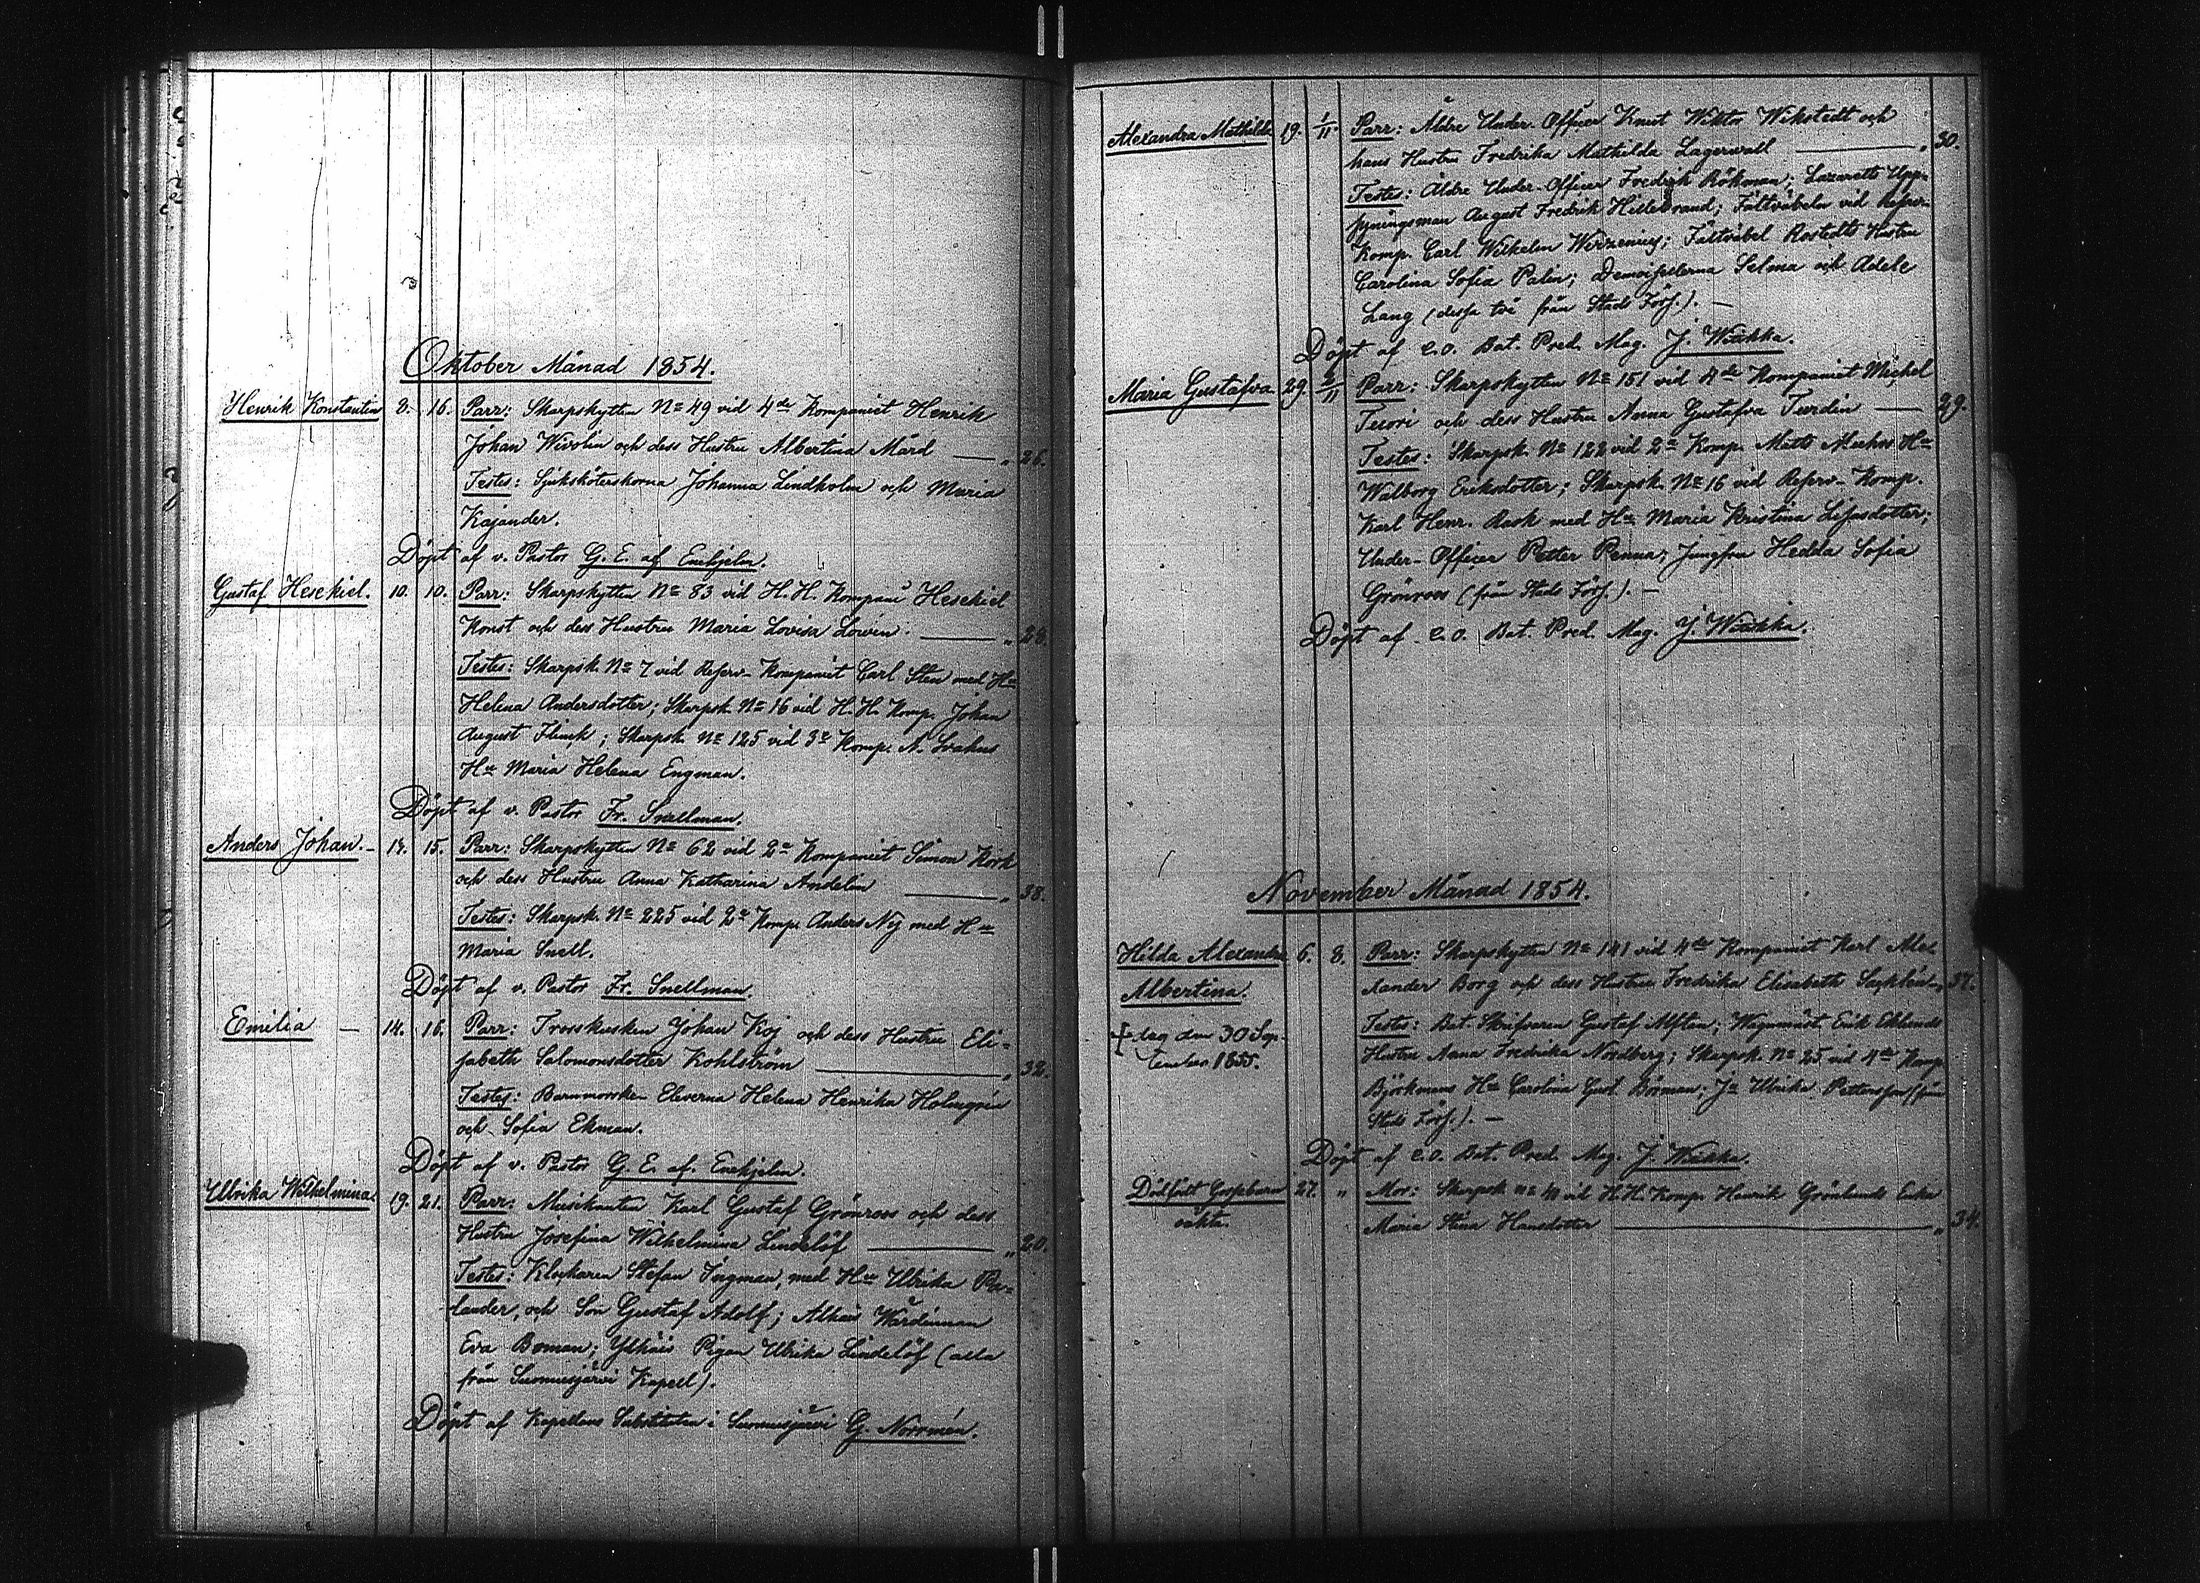 Oktober Månad 1854.
Henrik Konstantin 8. 16. Parr: Skarpskytten No 49 vid 4de Kompaniet Henrik
Johan Wivolin och dess Hustru Albertina Mård — „ 26.
Testes: Sjuksköterskorna Johanna Lindholm och Maria
Kajander.
Döpt af v. Pastor G. E. af Enehjelm.
Gustaf Hesekiel. 10. 10. Parr: Skarpskytten No 83 vid H. H. Kompani Hesekiel
Konst och dess Hustru Maria Lovisa Lowén. — „ 28.
Testes: Skarpsk. No 7 vid Reserv-Kompaniet Carl Sten med Hu
Helena Andersdotter; Skarpsk. No 16 vid H. H. Komp. Johan
August Flinck; Skarpsk. No 125 vid 3e Komp. A. Svahns
Hu Maria Helena Engman.
Döpt af v. Pastor Fr. Snellman.
Anders Johan. — 13. 15. Parr: Skarpskytten No 62 vid 2a Kompaniet Simon Kork
och dess Hustru Anna Katharina Andelin — „ 38.
Testes: Skarpsk. No 225 vid 2a Komp. Anders Nij med Hu
Maria Snell.
Döpt af v. Pastor Fr. Snellman.
Emilia — 14. 16. Parr: Trosskusken Johan Koj och dess Hustru Eli-
sabeth Salomonsdotter Kohlström — „ 32.
Testes: Barnmorske-Eleverna Helena Henrika Holmgrén
och Sofia Ekman.
Döpt af v. Pastor G. E. af. Enehjelm.
Ulrika Wilhelmina. 19. 21. Parr: Musikanten Karl Gustaf Grönroos och dess
Hustru Josefina Wilhelmina Lindelöf — „ 20.
Testes: Klockaren Stefan Ingman, med Hu Ulrika Pa-
lander, och Son Gustaf Adolf; Alhais Wärdinnan
Eva Boman; Ylhäis Pigan Ulrika Lindelöf (alla
från Suomusjärvi Kapell).
Döpt af Kapellans Substituten i Suomusjärvi G. Norrmén.
Alexandra Mathilda 19. 1/11. Parr: Äldre Under-Officer Knut Wiktor Wikstedt och
hans Hustru Fredrika Mathilda Lagerwall — „ 30.
Testes: Äldre Under-Officer Fredrik Rökman; Lazaretts Upp-
syningsman August Fredrik Hillebrand; Fältväbeln vid Reserv-
Komp. Carl Wilhelm Wirzenius; Fältväbel Rostedts Hustru
Carolina Sofia Palin; Demoisellerna Selma och Adele
Lang (dessa två från Stads Förs.). —
Döpt af e. o. Bat. Pred. Mag. J.
Maria Gustafva 29. 2/11 Parr: Skarpskytten No 151 vid 4de Kompaniet Michel
Tuori och dess Hustru Anna Gustafva Turdin — 29.
Testes: Skarpsk. No 122 vid 2a Komp. Matts Hu
Walborg Eriksdotter; Skarpsk. No 16 vid Reserv-Komp.
Karl Henr. Rask med Hu Maria Kristina Lisasdotter;
Under-Officer Petter Penna; Jungfru Hedda Sofia
Grönroos (från Stads Förs.). —
Döpt af e. o. Bat. Pred. Mag. J.
November Månad 1854.
Hilda Alexandra 6. 8. Parr: Skarpskytten No 141 vid 4de Kompaniet Karl Alex-
Albertina. xander Borg och dess Hustru Fredrika Elisabeth Sacklén „ 37.
† dog den 30 Sep-
tember 1855.
Testes: Bat. Skrifvaren Gustaf Alftan; Wagnmäst. Erik Eklunds
Hustru Anna Fredrika Nordberg; Skarpsk. No 25 vid 4de Komp.
Björkmans Hu Carolina Gust. Börman; Ja Ulrika Pettersson (från
Stads Förs.). —
Döpt af e. o. Bat. Pred. Mag. J.
Dödfödt Gossebarn 27. „ Mor: Skarpsk. No 40 vid H. H. Komp. Henrik Grönlunds Enka
äkta. Maria Stina Hansdotter — „ 34.